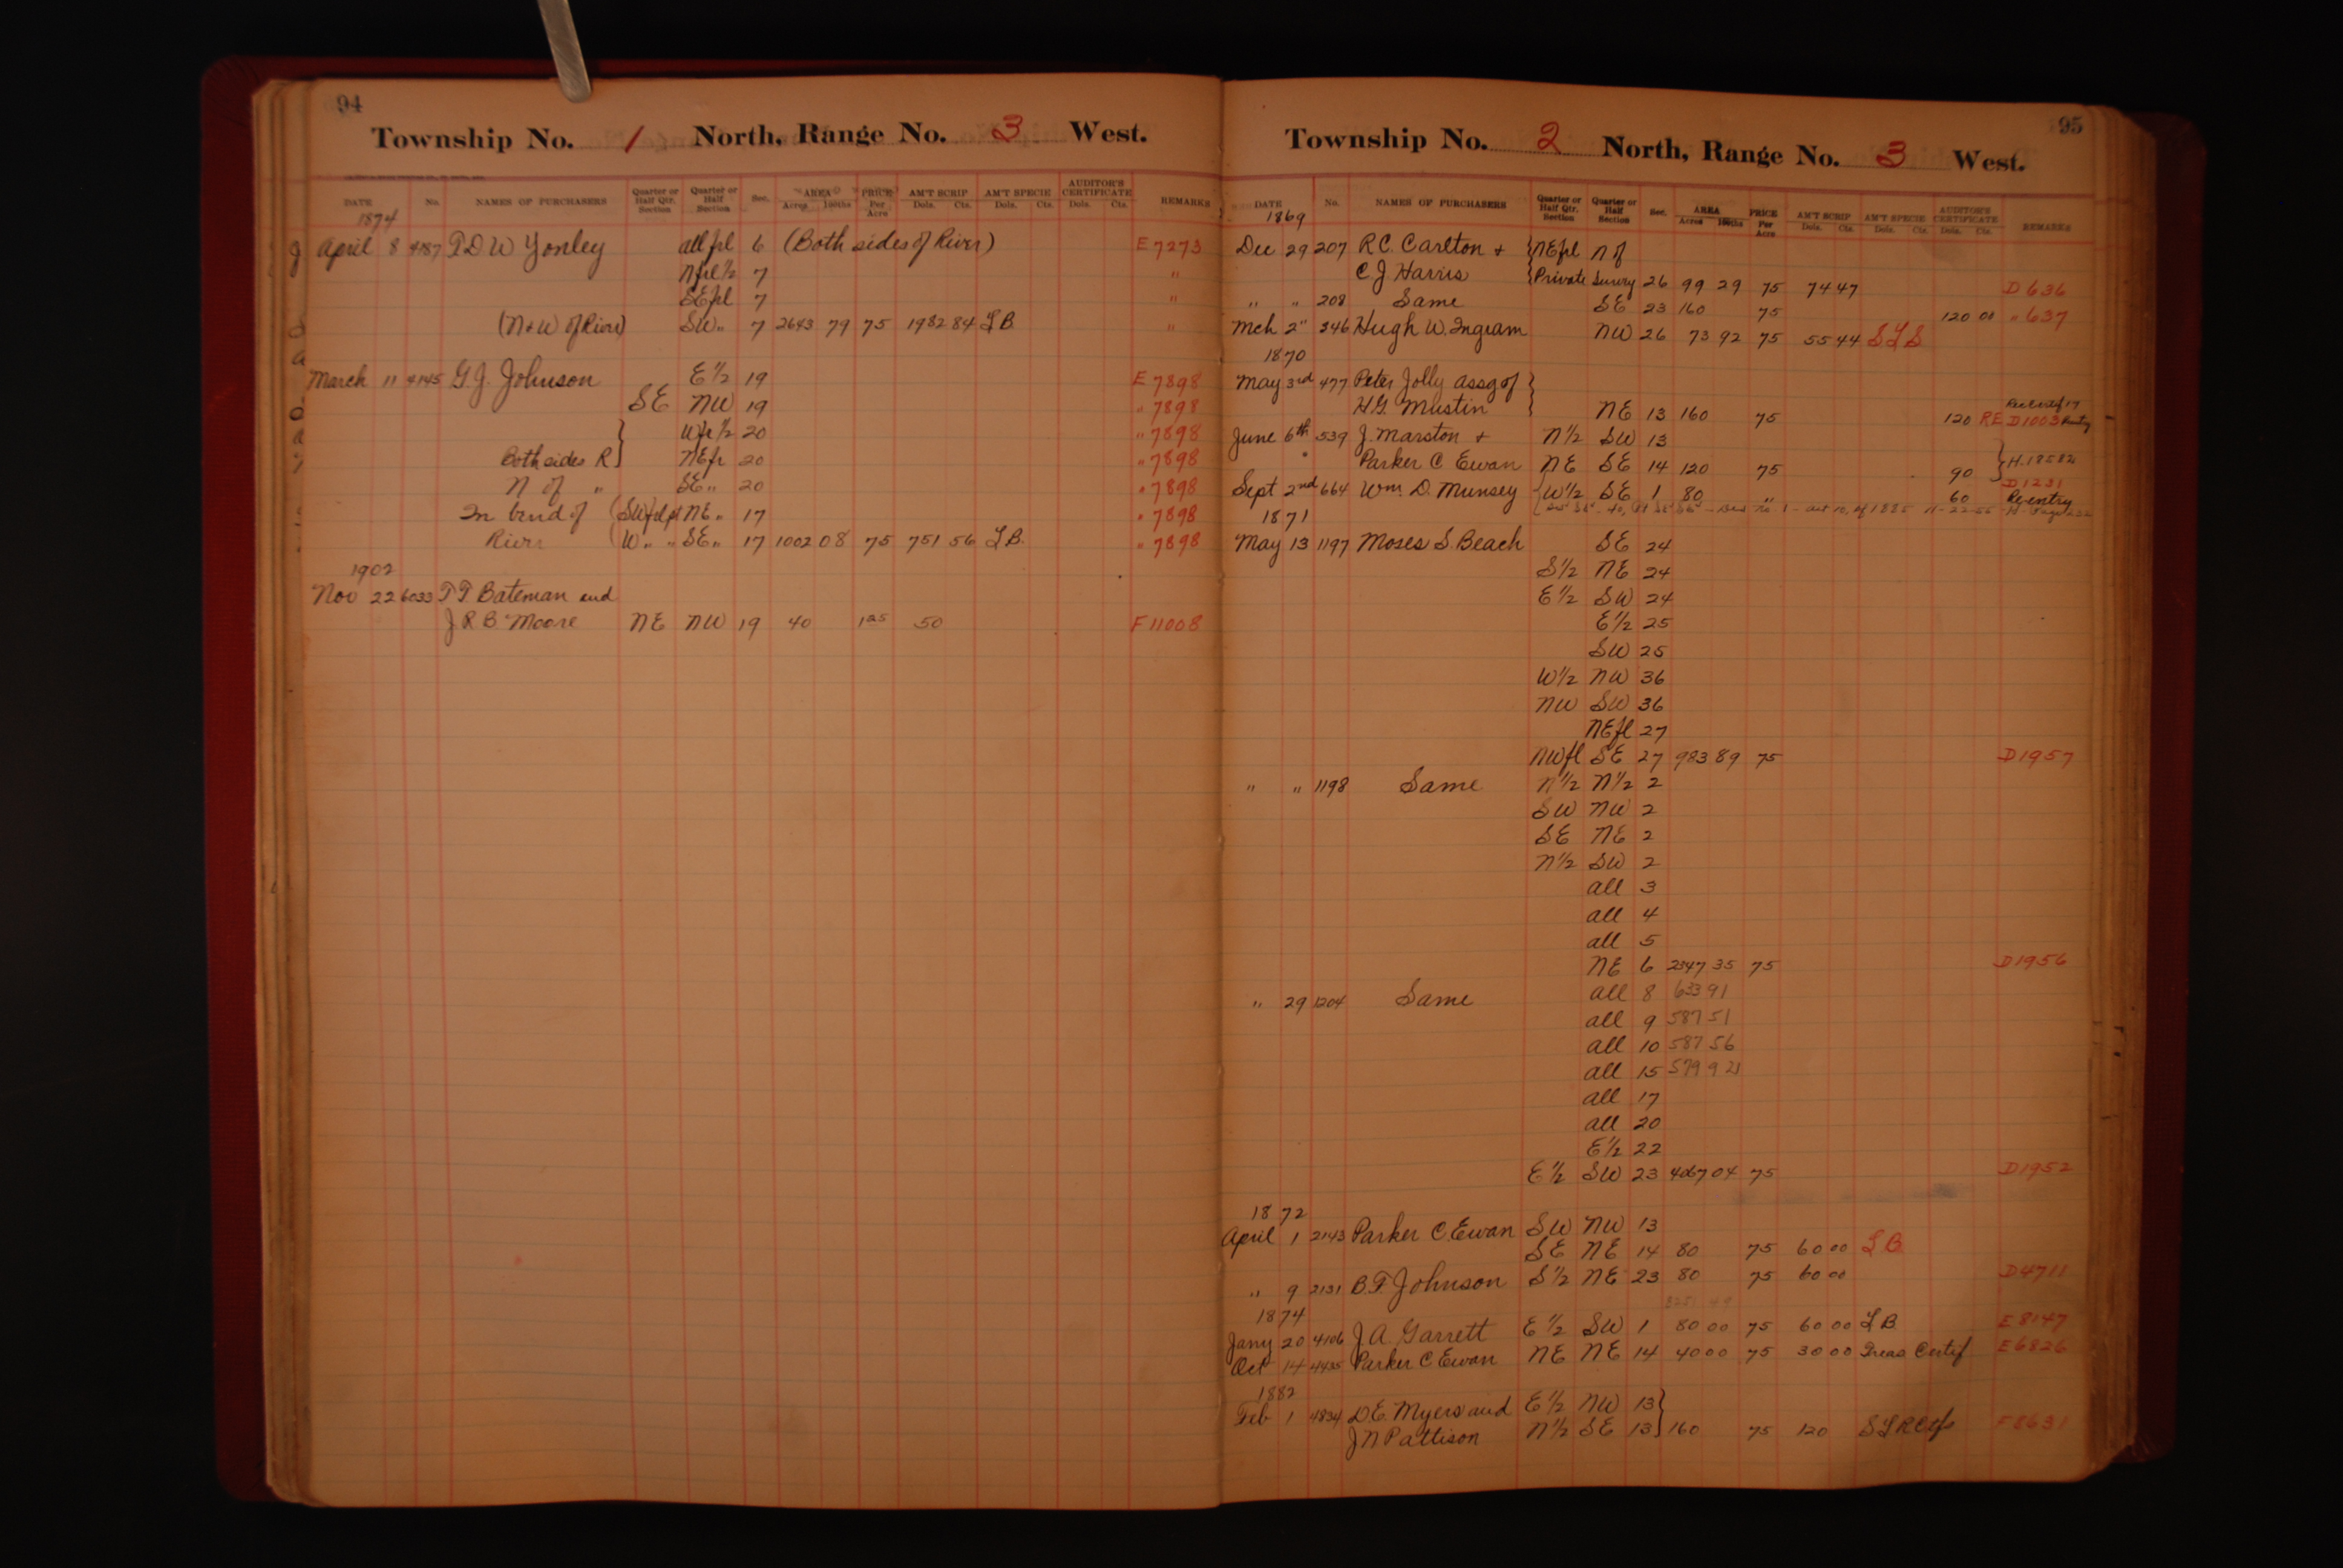 94
Township No. 1 North, Range No. 3 West.
DATE No. NAMES OF PURCHASERS Quarter or Half Qtr. Section Quarter or Half Section Sec. AREA Acres 100ths PRICE Per Acre AM'T SCRIP Dols. Cts. AM'T SPECIE Dols. Cts. AUDITOR'S CERTIFICATE Dols. Cts. REMARKS
1874
April 8 4187 T D W Yonley all frl 6 (Both sides of River) E 7273
N frl ½ 7 "
SE frl 7 "
(N & W of River) SW " 7 2643 79 75 1982 84 L B "
March 11 4145 G. J. Johnson E ½ 19 E 7898
SE NW 19 " 7898
W fr ½ 20 " 7898
Both sides R NE fr 20 " 7898
N of " SE " 20 " 7898
In bend of SW frl pt NE " 17 " 7898
River W " " SE " 17 1002 08 75 751 56 L B. " 7898
1902
Nov 22 6033 T T Bateman and
J R B Moore NE NW 19 40 1 25 50 F 11008
95
Township No. 2 North, Range No. 3 West.
DATE No. NAMES OF PURCHASERS Quarter or Half Qtr. Section Quarter or Half Section Sec. AREA Acres 100ths PRICE Per Acre AM'T SCRIP Dols. Cts. AM'T SPECIE Dols. Cts. AUDITOR'S CERTIFICATE Dols. Cts. REMARKS
1869
Dec 29 207 R C. Carlton + NE frl N of
C J Harris Private Survey 26 99 29 75 74 47 D 636
" " 208 Same SE 23 160 75 120 00 " 637
Mch 2 " 346 Hugh W. Ingram NW 26 73 92 75 55 44 S L S
1870
May 3rd 477 Peter Jolly Assg of
H G. Mustin NE 13 160 75 120 RE D 1003
June 6th 539 J. Marston + N ½ SW 13
Parker C Ewan NE SE 14 120 75 90 H. 18582
D 1231
Sept 2nd 664 Wm. D. Munsey W ½ SE 1 80 " 60 Re-entry
1871
May 13 1197 Moses S. Beach SE 24
S ½ NE 24
E ½ SW 24
E ½ 25
SW 25
W ½ NW 36
NW SW 36
NE fl 27
NW fl SE 27 983 89 75 D 1957
" " 1198 Same N ½ N ½ 2
SW NW 2
SE NE 2
N ½ SW 2
all 3
all 4
all 5
NE 6 2347 35 75 D 1956
" 29 1204 Same all 8 633 91
all 9 587 51
all 10 587 56
all 15 579 9
all 17
all 20
E ½ 22
E ½ SW 23 4067 04 75 D 1952
1872
April 1 2143 Parker C. Ewan SW NW 13
SE NE 14 80 75 60 00 L B
" 9 2131 B. F. Johnson S ½ NE 23 80 75 60 00 D 4711
1874
Jany 20 4106 J A. Garrett E ½ SW 1 80 00 75 60 00 L B E 8147
Oct 14 4435 Parker C Ewan NE NE 14 40 00 75 30 00 Treas Certif E 6826
1882
Feb 1 4834 D. E. Myers and E ½ NW 13
J N Pattison N ½ SE 13 160 75 120 S L R Ctfs F 8631